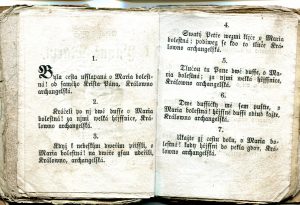 1.
Byla cesta usslapaná o Maria bolest-
ná! od samého Krista Pána, Králowno
archangelská.
2.
Kráčeli po nj dwě dusse o Maria
bolestná! za njmi welká hřjssnice, Krá-
lowno archangelská.
3.
Když k nebeským dweřům přissli, o
Maria bolestná! na dwéře gsau udeřili,
Králowno, archangelská.
4.
Swatý Petře wezmi kljče o Maria
bolestná: podjweg se kdo to tluče Krá-
lowno archangelská.
5.
Tlučou tu Pane dwě dusse, o Maria
bolestná; za njmi welká hřjssnice, Krá-
lowno archangelská.
6.
Dwě dussičky sem pusťte, o Maria
bolestná! hřjssné dussi odtud kažte, Krá-
lowno archangelská.
7.
Ukažte gj cestu dolu, o Maria
bolestná! kudy hřjssnj do pekla gdau, Krá-
lowno archangelská.